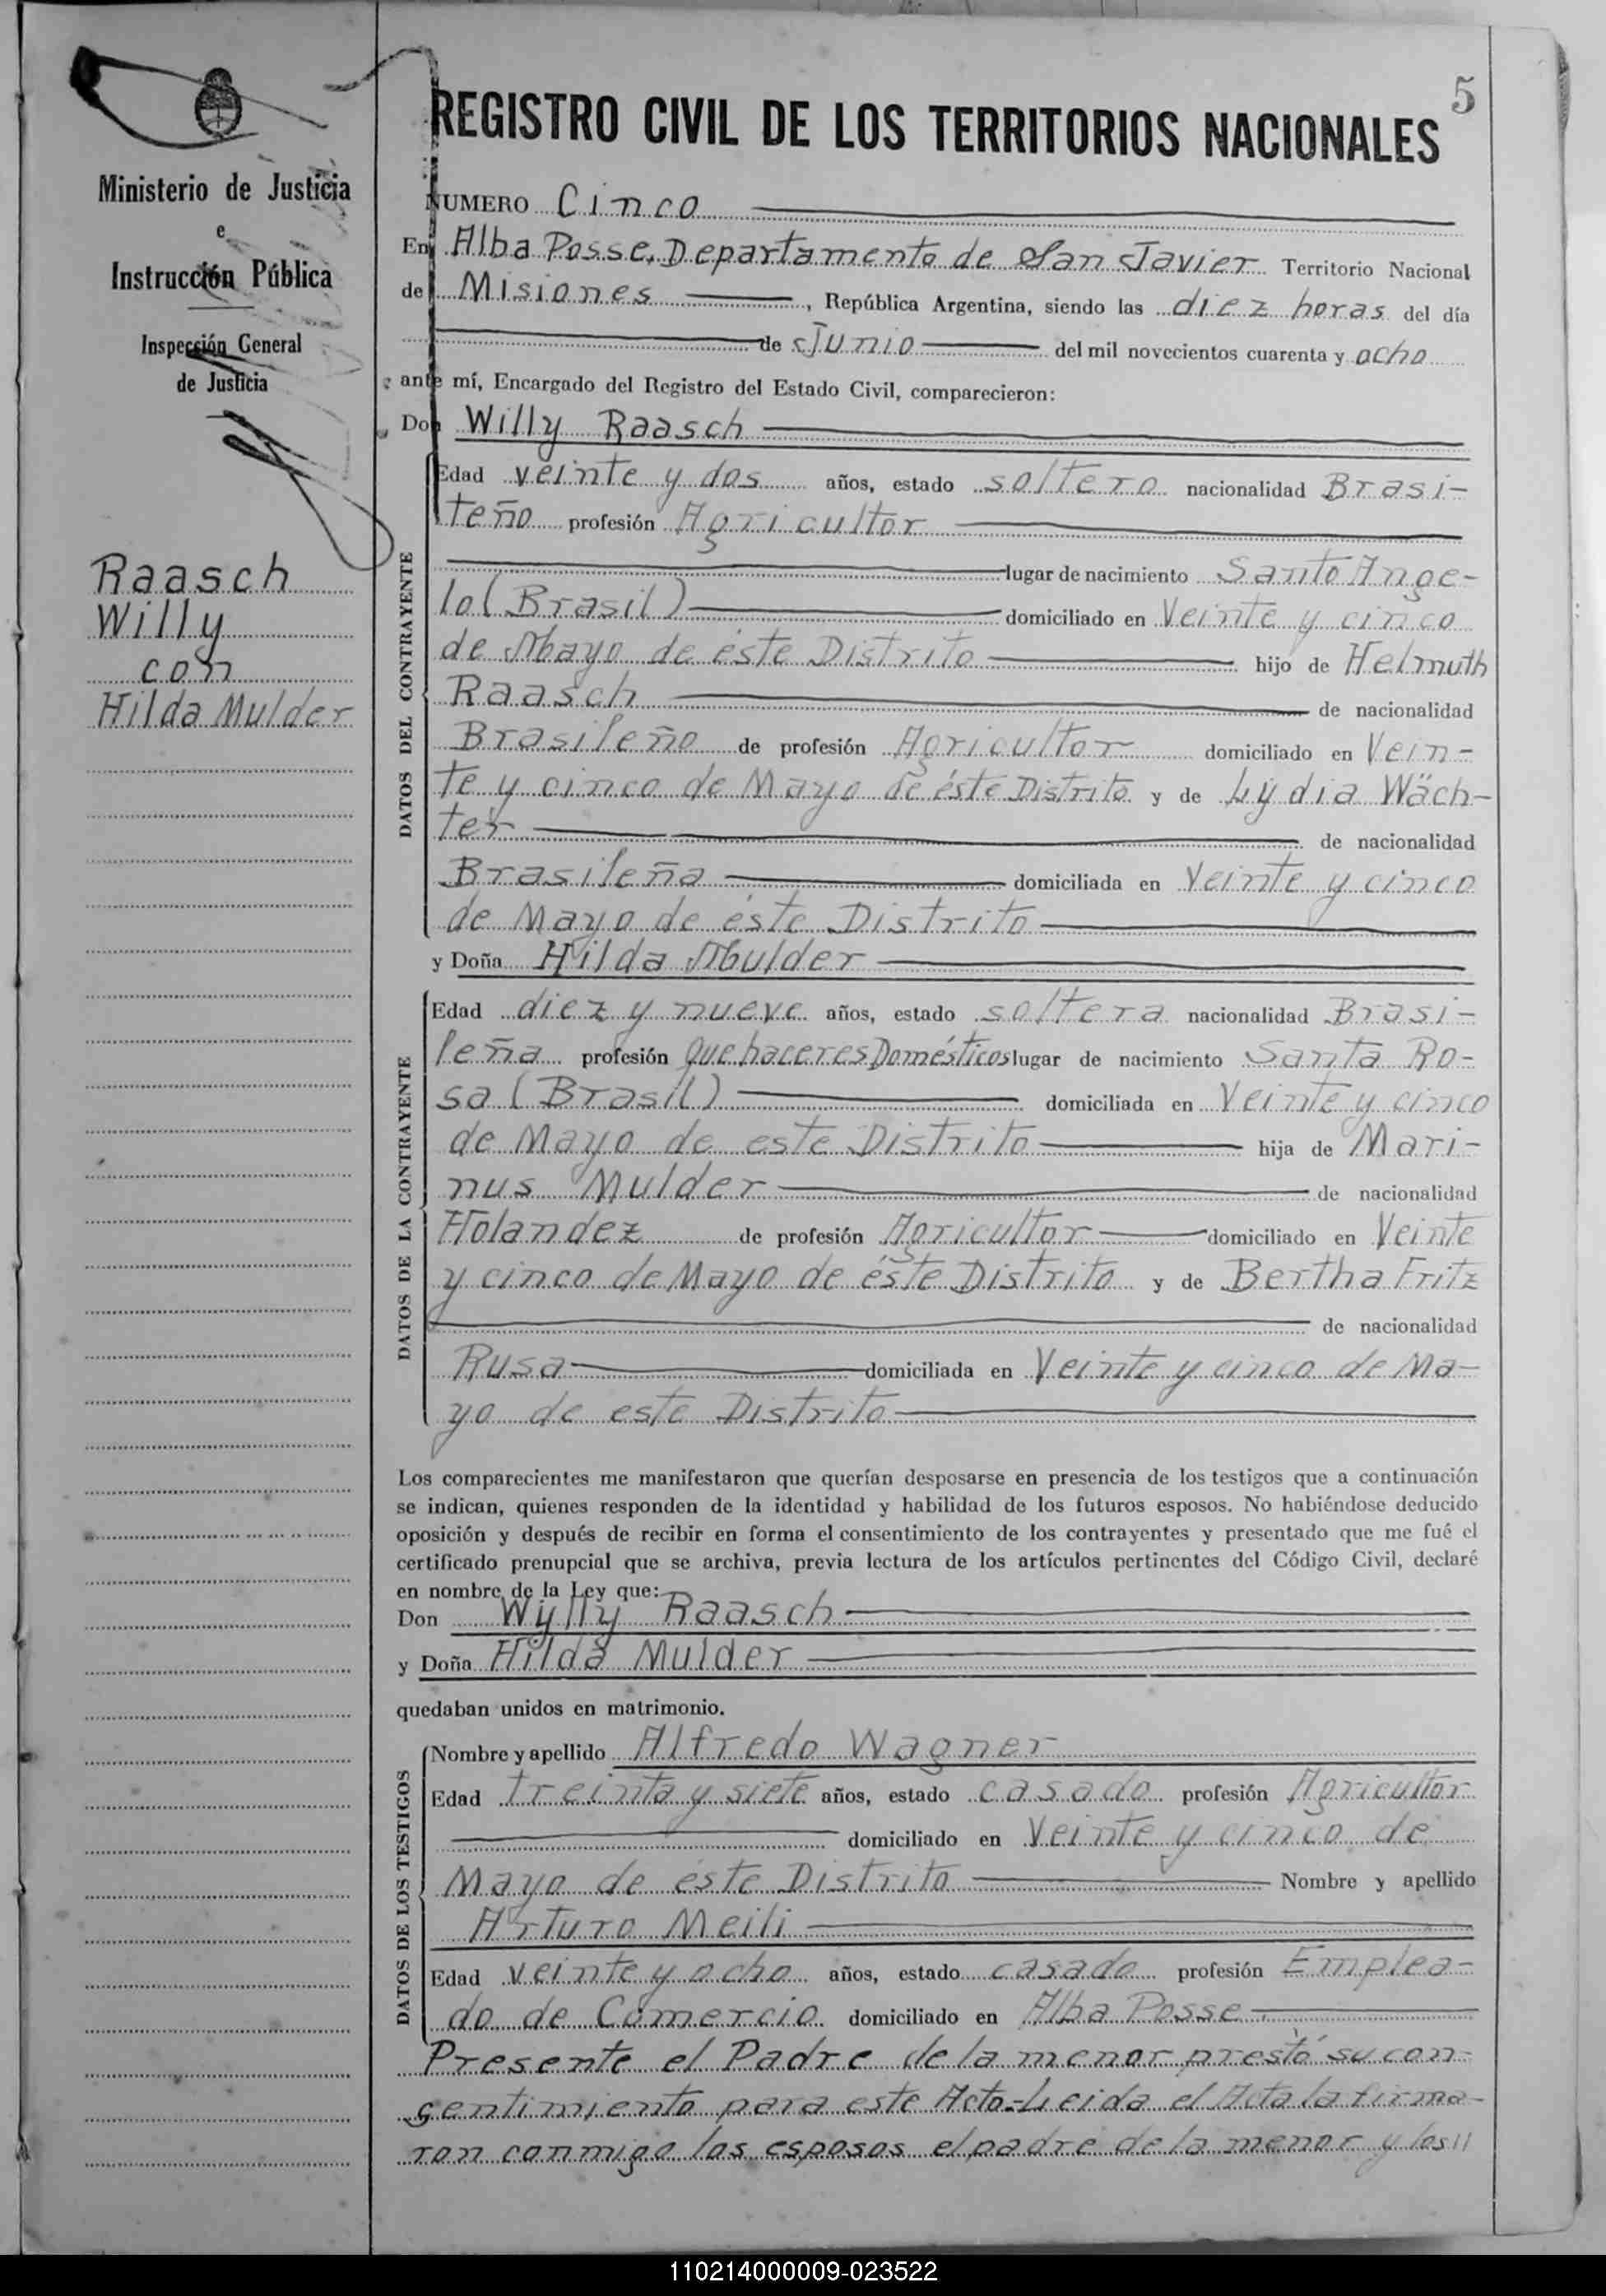 5
REGISTRO CIVIL DE LOS TERRITORIOS NACIONALES
Ministerio de Justicia
e
Instrucción Pública
Inspección General
de Justicia
Raasch
Willy
con
Hilda Mulder
NUMERO Cinco
En Alba Posse, Departamento de San Javier Territorio Nacional
de Misiones, República Argentina, siendo las diez horas del día
de Junio del mil novecientos cuarenta y ocho
ante mí, Encargado del Registro del Estado Civil, comparecieron:
Don Willy Raasch
DATOS DEL CONTRAYENTE
Edad veinte y dos años, estado soltero nacionalidad Brasi-
leño profesión Agricultor
lugar de nacimiento Santo Ange-
lo (Brasil) domiciliado en Veinte y cinco
de Mayo de éste Distrito hijo de Helmuth
Raasch de nacionalidad
Brasileño de profesión Agricultor domiciliado en Vein-
te y cinco de Mayo de éste Distrito y de Lydia Wäch-
ter de nacionalidad
Brasileña domiciliada en Veinte y cinco
de Mayo de éste Distrito
y Doña Hilda Mulder
DATOS DE LA CONTRAYENTE
Edad diez y nueve años, estado soltera nacionalidad Brasi-
leña profesión Quehaceres Domésticos lugar de nacimiento Santa Ro-
sa (Brasil) domiciliada en Veinte y cinco
de Mayo de este Distrito hija de Mari-
nus Mulder de nacionalidad
Holandez de profesión Agricultor domiciliado en Veinte
y cinco de Mayo de éste Distrito y de Bertha Fritz
de nacionalidad
Rusa domiciliada en Veinte y cinco de Ma-
yo de este Distrito
Los comparecientes me manifestaron que querían desposarse en presencia de los testigos que a continuación
se indican, quienes responden de la identidad y habilidad de los futuros esposos. No habiéndose deducido
oposición y después de recibir en forma el consentimiento de los contrayentes y presentado que me fué el
certificado prenupcial que se archiva, previa lectura de los artículos pertinentes del Código Civil, declaré
en nombre de la Ley que:
Don Wylly Raasch
y Doña Hilda Mulder
quedaban unidos en matrimonio.
DATOS DE LOS TESTIGOS
Nombre y apellido Alfredo Wagner
Edad treinta y siete años, estado casado profesión Agricultor
domiciliado en Veinte y cinco de
Mayo de éste Distrito Nombre y apellido
Arturo Meili
Edad veinte y ocho años, estado casado profesión Emplea-
do de Comercio domiciliado en Alba Posse.
Presente el Padre de la menor prestó su con-
sentimiento para este Acto.-Leida el Acta la firma-
ron conmigo los esposos el padre de la menor y los//
110214000009-023522